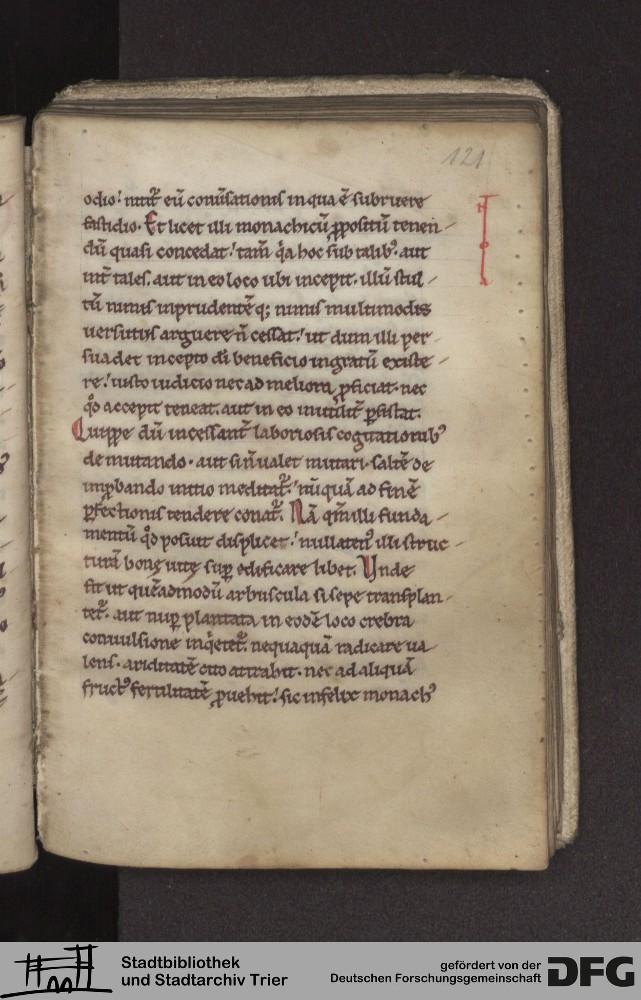 121
odio! nitit᷑ eū conūsationis in qua ē subruere
fastidio. Et licet illi monachicū ꝓpositū tenen-
dū quasi concedat! tam̄ qͥa hoc sub talibꝰ. aut
int̄ tales. aut in eo loco ubi incepit. illū stul-
tū nimis inprudentēq; nimis multimodis
uersutiis arguere n̄ cessat! ut dum illi per-
suadet incepto di beneficio ingratū existe-
re! iusto iudicio nec ad meliora ꝓficiat. nec
qḋ accepit teneat. aut in eo inutilit̄ ꝑsistat.
Quippe dū incessant̄ laboriosis cogitationibꝰ
de mutando. aut si n̄ ualet mutari. saltē de
improbando initio meditat᷑! nūquā ad finē
ꝑfectionis tendere conat᷑. Nā qm̄ illi funda-
mentū qḋ posuit displicet! nullatenꝰ illi struc-
turā bonę uitę suꝑ edificare libet. Unde
fit ut quēadmodū arbuscula si sepe transplan-
tet᷑. aut nuꝑ plantata in eodē loco crebra
conuulsione inqͥetet᷑. nequaquā radicare ua
lens. ariditatē cito attrahit. nec ad aliquā
fructꝰ fertilitatē ꝓuehit! sic infelix monachꝰ
Stadtbibliothek
und Stadtarchiv Trier
gefördert von der
Deutschen Forschungsgemeinschaft
DFG